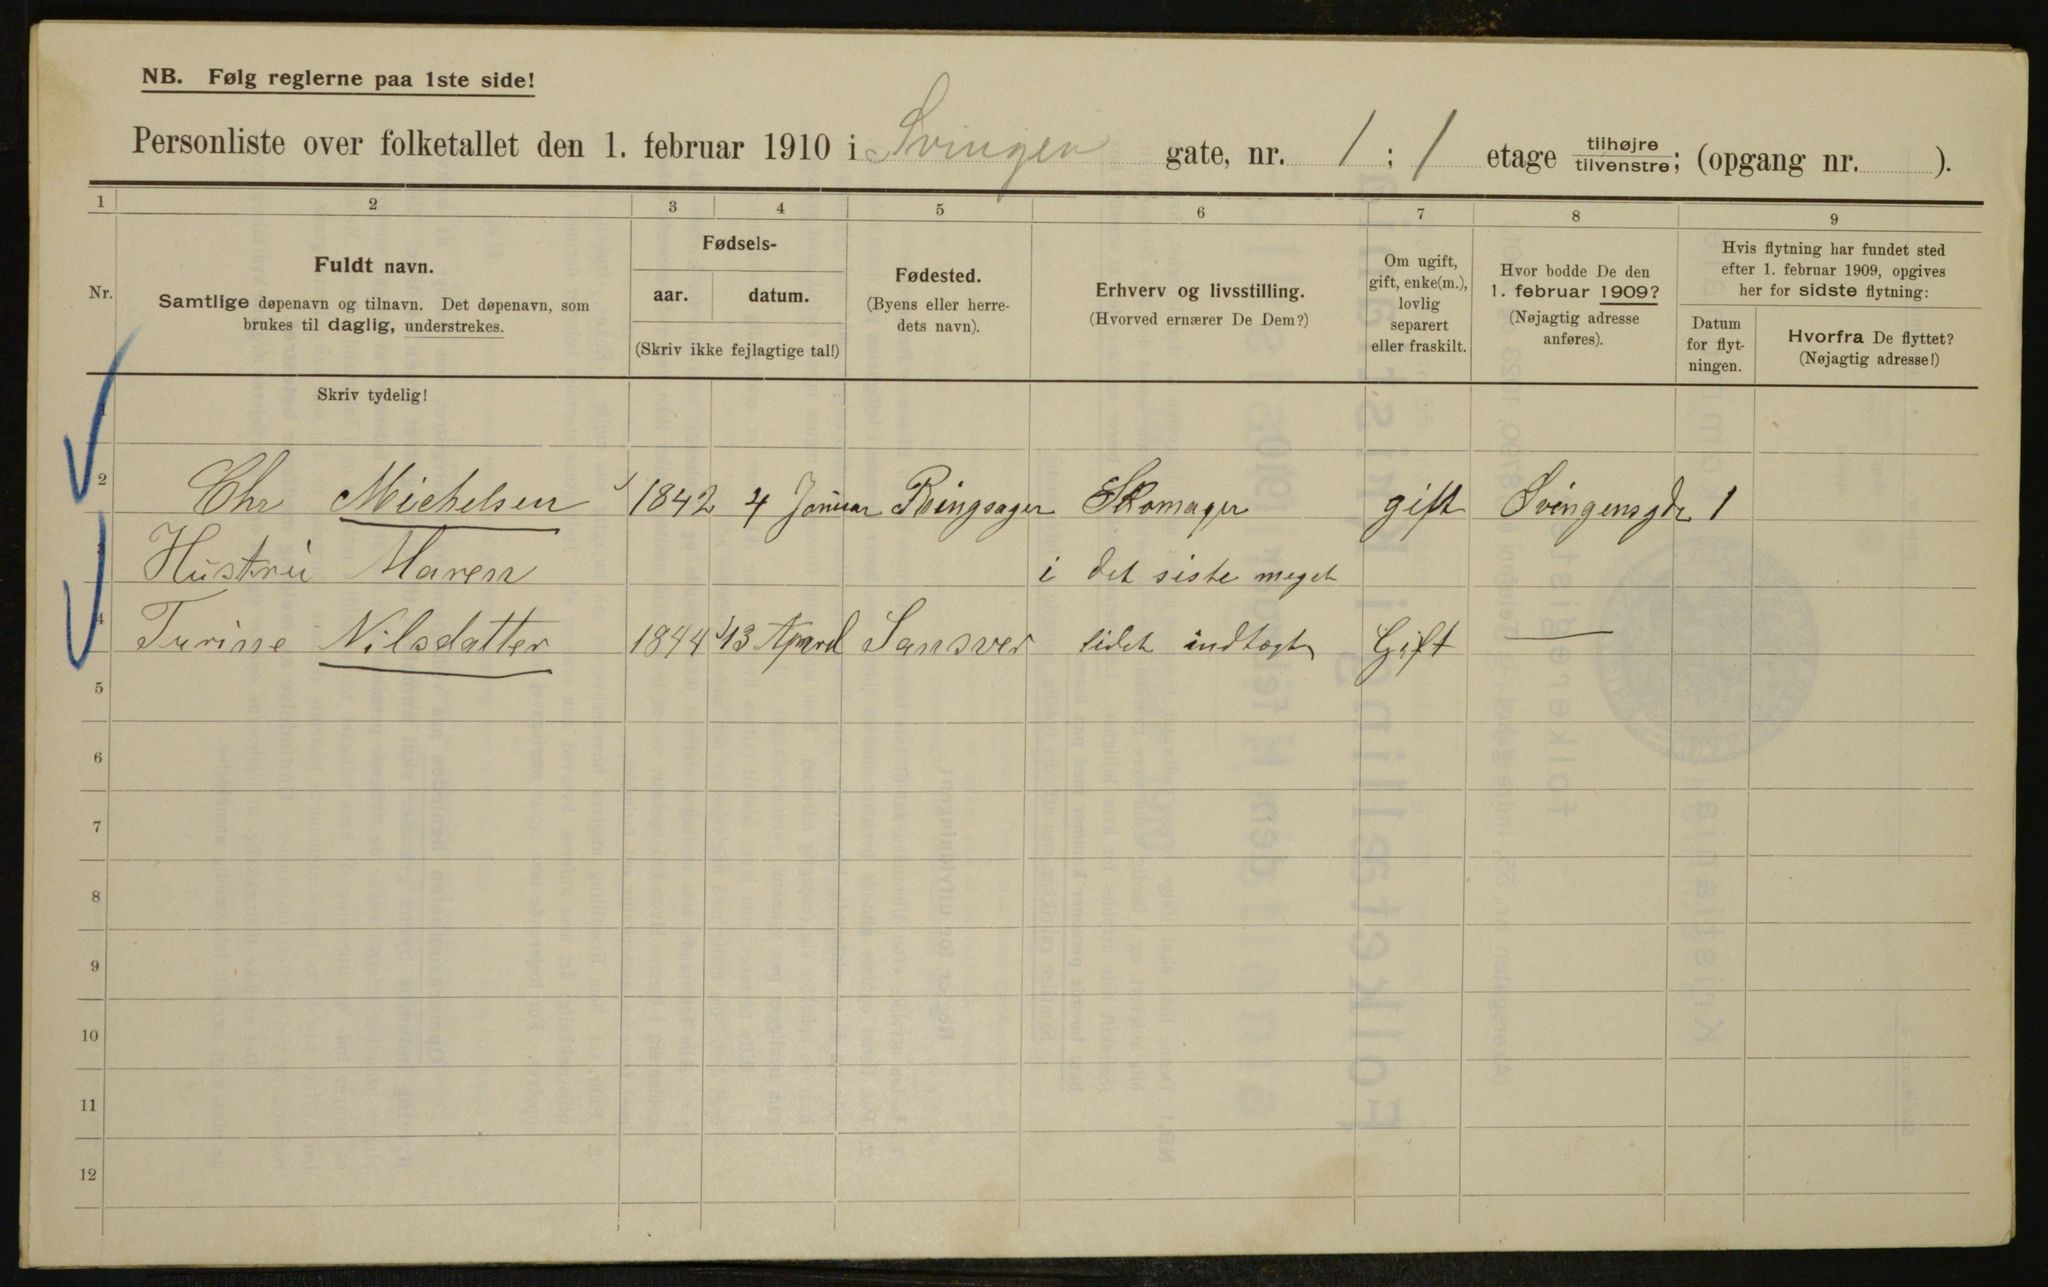 NB. Følg reglerne paa 1ste side!
Personliste over folketallet den 1. februar 1910 i Svingen gate, nr. 1; 1 etage tilhøjre/tilvenstre; (opgang nr. ).
1 2 3 4 5 6 7 8 9
Nr.
Fuldt navn.
Samtlige døpenavn og tilnavn. Det døpenavn, som
brukes til daglig, understrekes.
Fødsels-
aar. datum.
(Skriv ikke fejlagtige tal!)
Fødested.
(Byens eller herre-
dets navn).
Erhverv og livsstilling.
(Hvorved ernærer De Dem?)
Om ugift,
gift, enke(m.),
lovlig
separert
eller fraskilt.
Hvor bodde De den
1. februar 1909?
(Nøjagtig adresse
anføres).
Hvis flytning har fundet sted
efter 1. februar 1909, opgives
her for sidste flytning:
Datum
for flyt-
ningen.
Hvorfra De flyttet?
(Nøjagtig adresse!)
Skriv tydelig!
1
2 Chr Michelsen 1842 4 Januar Ringsager Skomager gift Svingensgde 1
3 Hustru Maren i det siste meget
4 Turine Nilsdatter 1844 13 Sansver lidet indtægt Gift —
5
6
7
8
9
10
11
12